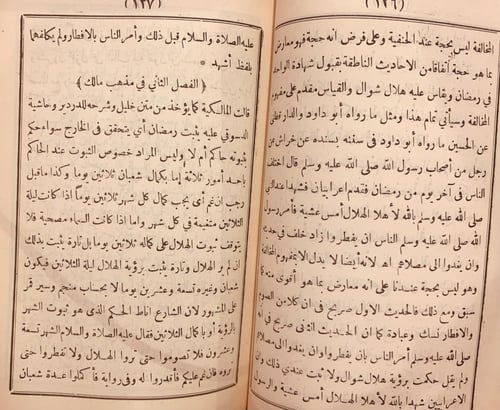 (١٣٦)
المخالفة ليس بحجة عند الحنفية وعلى فرض انه حجة فهو معارض
بما هو حجة اتفاقا من الاحاديث الناطقة بقبول شهادة الواحد
فى رمضان ويقاس عليه هلال شوال والقياس مقدم على مفهوم
المخالفة وسيأتي تمام هذا ومثل ما رواه أبو داود والدار قطنى
عن الحسين ما رواه أبو داود فى سننه بسنده عن خراش عن
رجل من أصحاب رسول الله صلى الله عليه وسلم قال اختلف
الناس فى آخر يوم من رمضان فقدم اعرابيان فشهدا عند النبى
صلى الله عليه وسلم بالله لأهلا الهلال أمس عشية فأمر رسول
الله صلى الله عليه وسلم الناس ان يفطروا زاد خلف فى حديثه
وان يغدوا الى مصلاهم اه لانه أيضا لا يدل الا بمفهوم المخالفة
وهو ليس بحجة عندنا على انه معارض بما هو أقوى منه كما
سبق ومع ذلك فالحديث الاول صريح فى ان كلا من الصوم
والافطار نسك وعبادة كما ان الحديث الثانى صريح فى انه
صلى الله عليه وسلم أمر الناس بان يفطروا وان يغدوا الى مصلاهم
ولم يقل حكمت برؤية هلال شوال ولا ثبت عندي ذلك وان
الاعرابيين شهدا بالله لأهلا الهلال أمس عشية والرسول
(١٣٧)
عليه الصلاة والسلام قبل ذلك وأمر الناس بالافطار ولم يكلفهما
بلفظ أشهد *
﴿ الفصل الثاني في مذهب مالك ﴾
قالت المالكية كما يؤخذ من متن خليل وشرحه للدردير وحاشية
الدسوقي عليه يثبت رمضان أي يتحقق فى الخارج سواء حكم
بثبوته حاكم أم لا وليس المراد خصوص الثبوت عند الحاكم
باحد أمور ثلاثة إما بكمال شعبان ثلاثين يوما وكذا ماقبل
رجب ان غم أي يجب كمال كل شهر ثلاثين يوماً اذا كانت ليلة
الثلاثين متغيمة في كل شهر واما اذا كانت السماء مصحية فلا
يتوقف ثبوت الهلال على كماله ثلاثين يوما بل تارة يثبت بذلك
ان لم ير الهلال وتارة يثبت برؤية الهلال ليلة الثلاثين فيكون
شعبان وغيره تسعة وعشرين يوما لا بحساب منجم وسير قمر
على المشهور لان الشارع اناط الحكم الذى هو ثبوت الشهر
بالرؤية أو باكمال الثلاثين فقال عليه الصلاة والسلام الشهر تسعة
وعشرون فلا تصوموا حتى تروا الهلال ولا تفطروا حتى
تروه فان غم عليكم فأقدروا له وفى رواية فأكملوا عدة شعبان